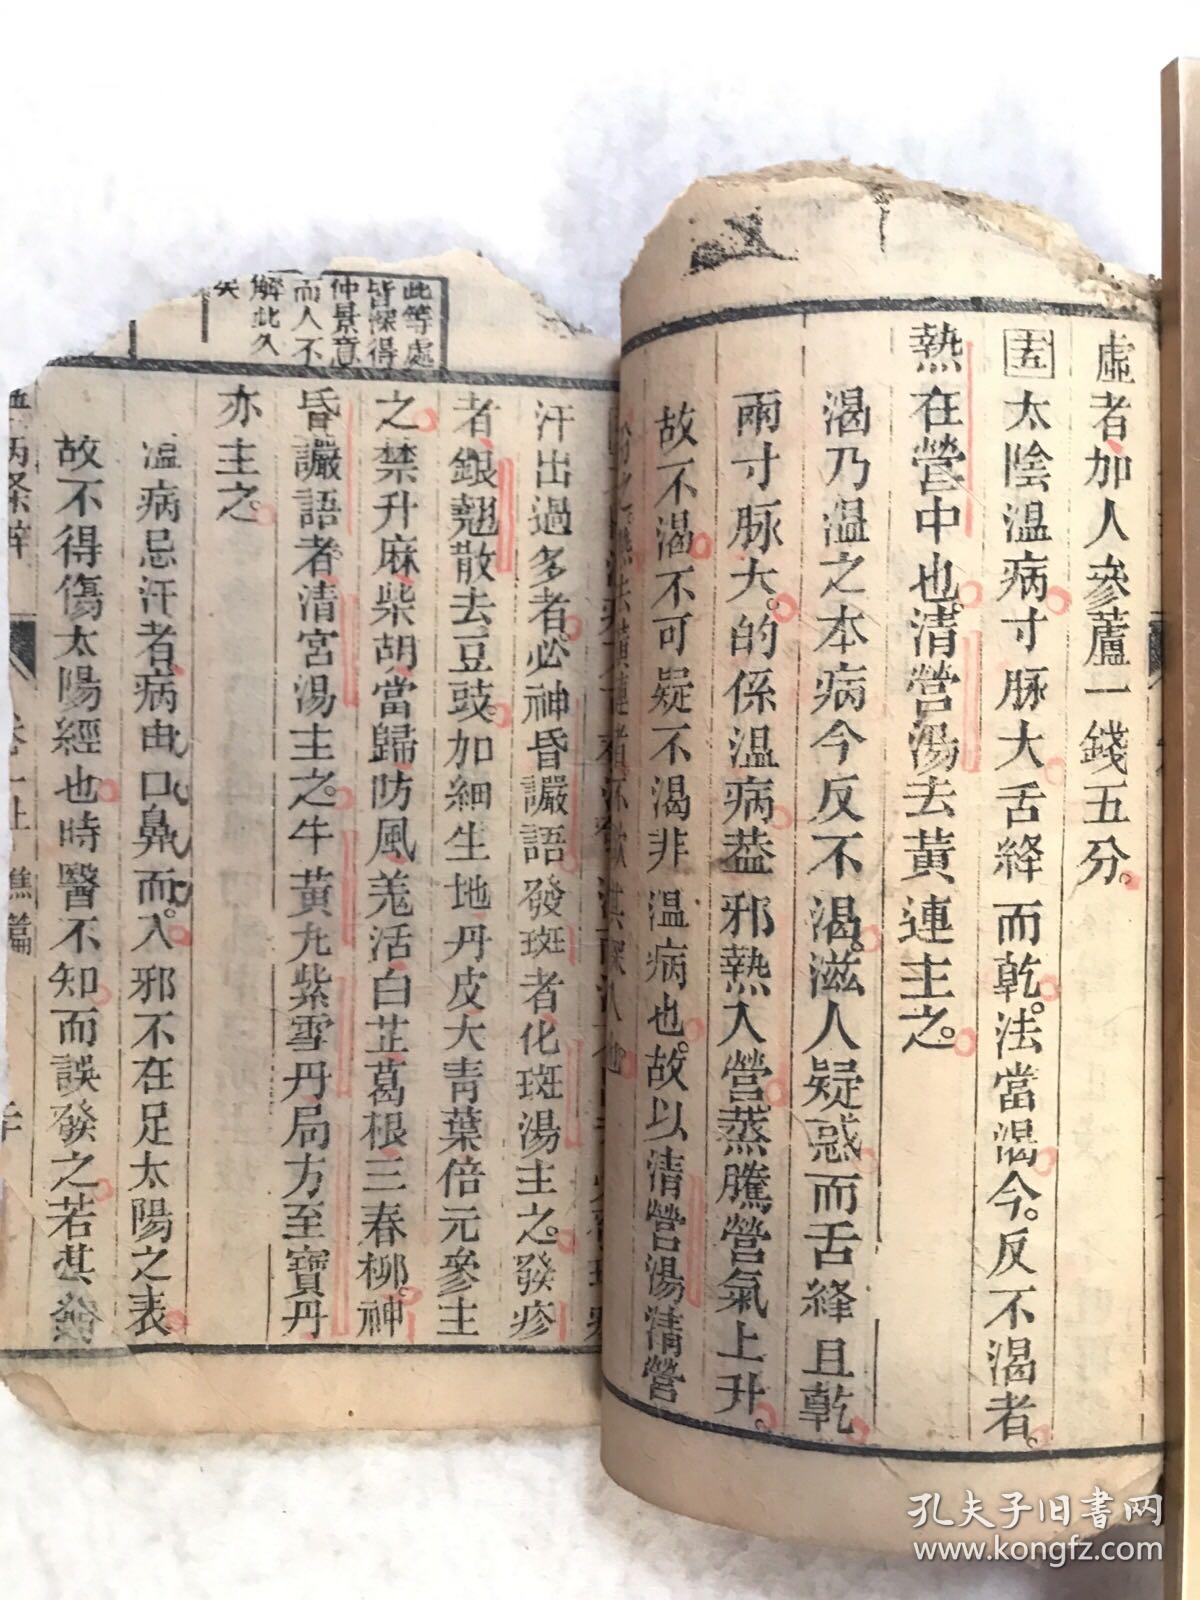 虛者加人參蘆一錢五分。
十五太陰温病寸脉大舌絳而乾。法當渴今。反不渴者。
熱在營中也。清營湯去黃連主之。
渴乃温之本病今反不渴。滋人疑惑而舌絳且乾
兩寸脉大。的係温病葢邪熱入營蒸騰營氣上升。
故不渴不可疑不渴非温病也。故以清營湯清營
汗出過多者。必神昏讝語發斑者化斑湯主之。發疹
者銀翹散去豆豉。加細生地丹皮大青葉倍元參主
之。禁升麻柴胡當歸防風羗活白芷葛根三春柳。神
昏讝語者清宮湯主之。牛黃九紫雪丹局方至寶丹
亦主之。
温病忌汗者病由口鼻而入。邪不在足太陽之表
故不得傷太陽經也時醫不知而誤發之若其發
此等處
皆深得
仲景意
而人不
解此久
矣
病条辨
卷一上焦篇
孔夫子旧书网
www.kongfz.com